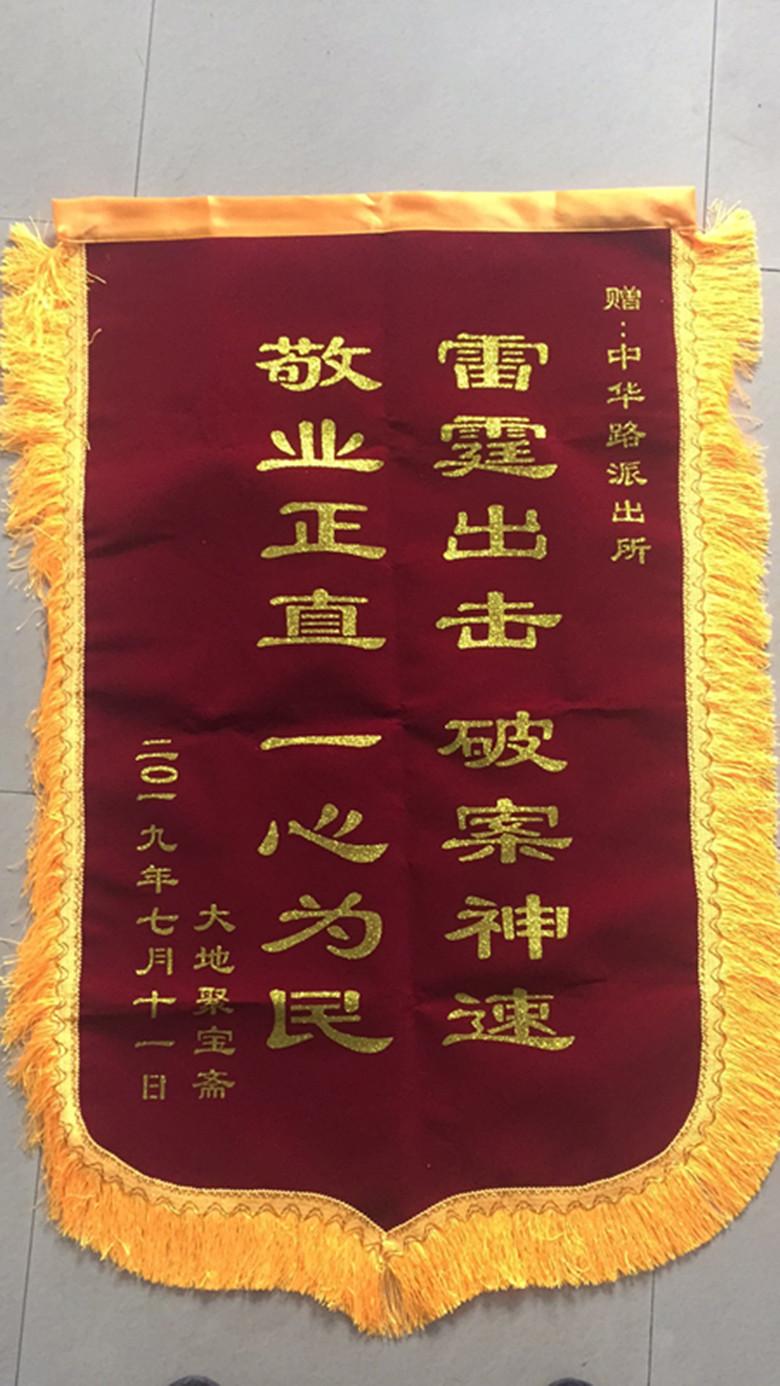 赠：中华路派出所
雷霆出击 破案神速
敬业正直 一心为民
大地聚宝斋
二〇一九年七月十一日